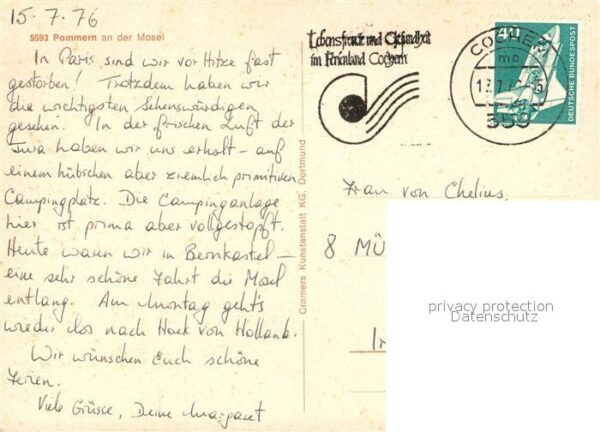 15-7.76
5593 Pommern an der Mosel
In Paris sind wir vor Hitze fast
gestorben! Trotzdem haben wir
die wichtigsten Sehenswürdigen
gesehen. In der frischen Luft der
Jura haben wir uns erholt - auf
einem hübschen aber ziemlich primitiven
Campingplatz. Die Campinganlage
hier ist prima aber vollgestopft.
Heute waren wir in Bernkastel -
eine sehr schöne Fahrt die Mosel
entlang. Am Montag geht's
wieder los nach Hoek van Holland.
Wir wünschen Euch schöne
Ferien.
Viele Grüsse, Deine Margaret
Cramers Kunstanstalt KG, Dortmund
Lebensfreude und Gesundheit
im Ferienland Cochem
COCHEM
mb
559
40
DEUTSCHE BUNDESPOST
Frau von Chelius,
8 MÜ
privacy protection
Datenschutz